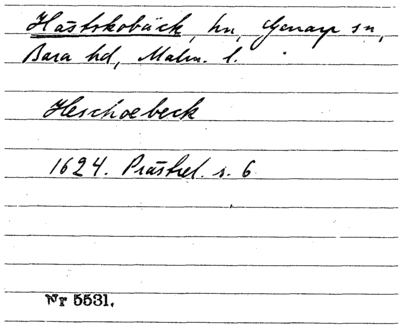 Hästskobäck, hn, Genarp sn,
Bara hd, Malm. l.
Heschoebeck
1624. Prästrel. s. 6
Nr 5531.